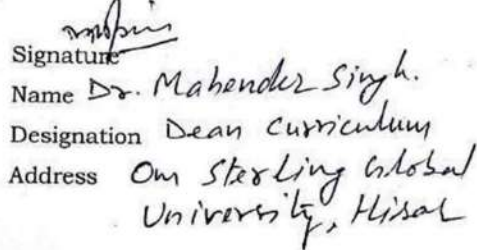 Signature
Name Dr. Mahender Singh.
Designation Dean Curriculum
Address Om Sterling Global
University, Hisar